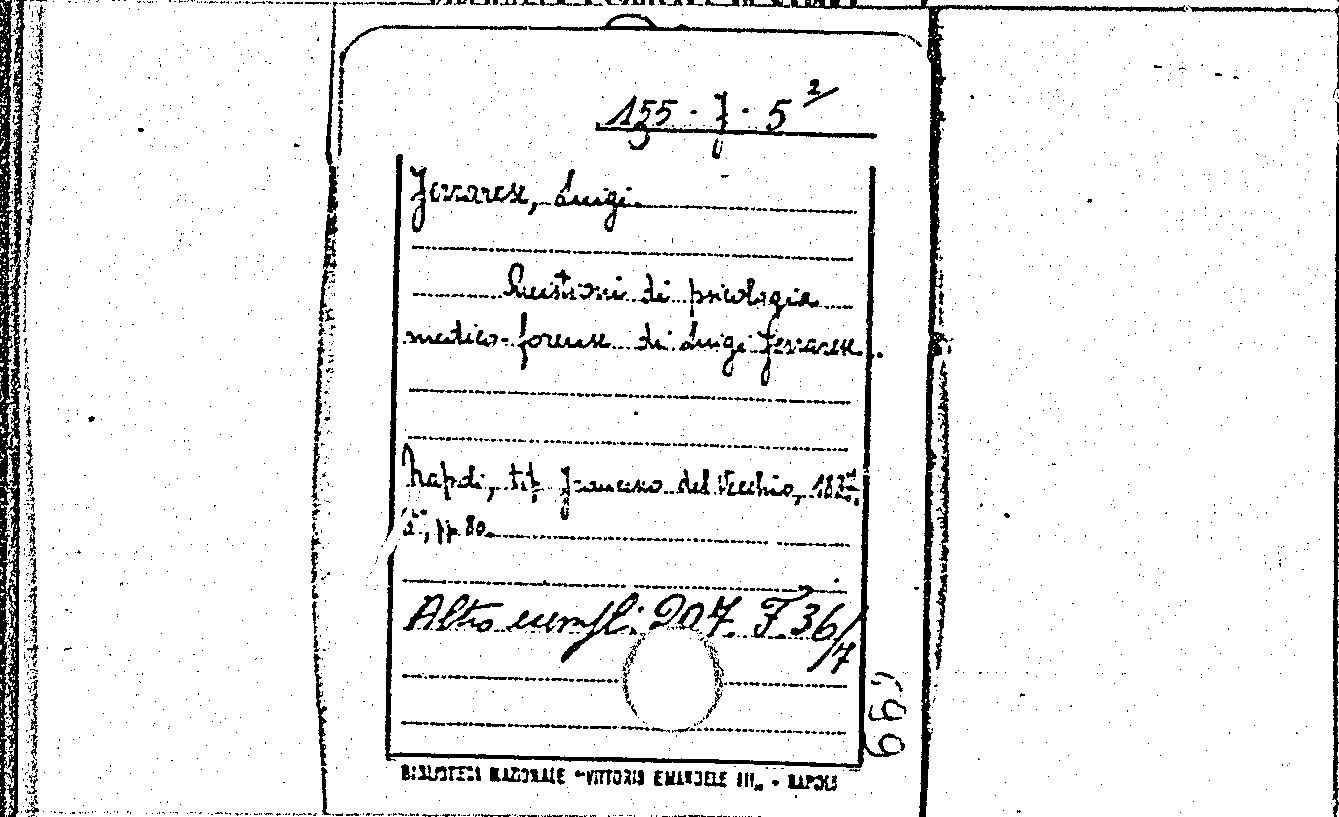 155. J. 5 2/
Ferrarese, Luigi.
Quistioni di psicologia
medico-forense di Luigi Ferrarese.
Napoli, tip. Francesco del Vecchio,
8°, pp. 80.
Altro esempl: 207. F. 36/7
699
BIBLIOTECA NAZIONALE "VITTORIO EMANUELE III„ - NAPOLI